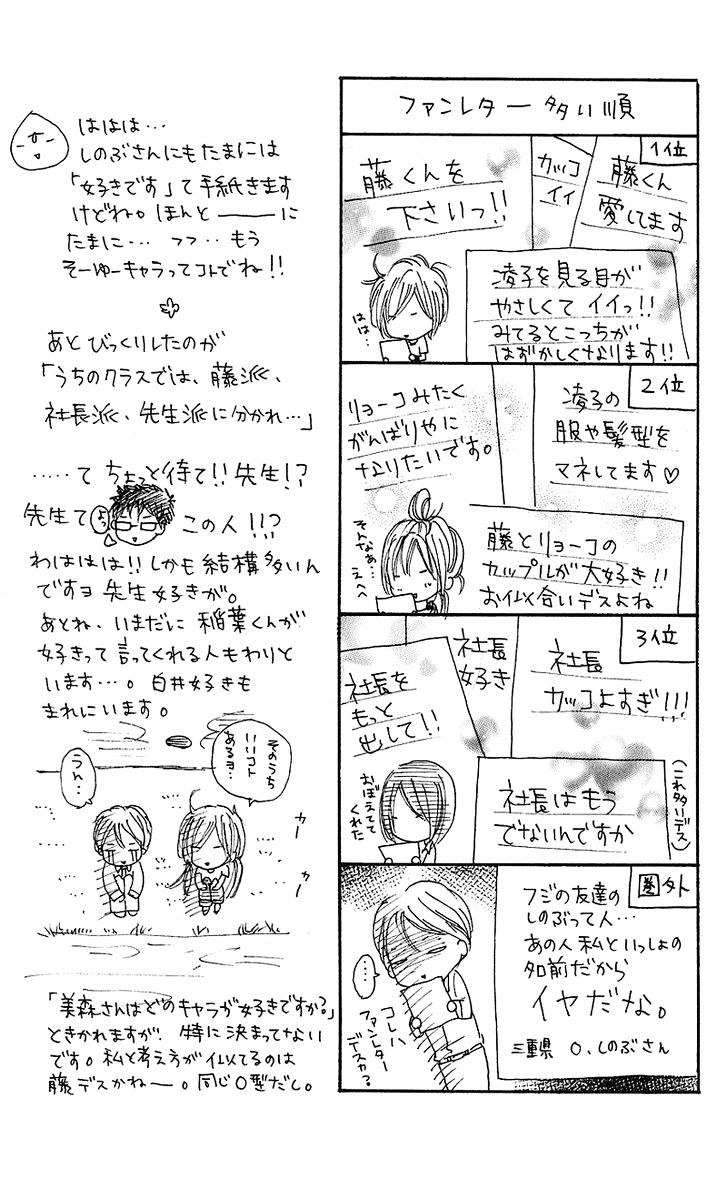 ファンレター多い順
1位
藤くん
愛してます
カッコ
イイ
藤くんを
下さいっ!!
凌子を見る目が
やさしくてイイっ!!
みてるとこっちが
はずかしくなります!!
はは…
2位
凌子の
服や髪型を
マネしてます♡
リョーコみたく
がんばりやに
なりたいです。
藤とリョーコの
カップルが大好き!!
お似合いデスよね
そんなぁ…
えへへ
3位
社長
カッコよすぎ!!!
社長
好き
社長を
もっと
出して!!
(これ多いデス)
社長はもう
でないんですか
おぼえてて
くれた
圏外
フジの友達の
しのぶって人…
あの人私といっしょの
名前だから
イヤだな。
三重県 O.しのぶさん
…
コレハ
ファンレター
デスカ?
ははは…
しのぶさんにもたまには
「好きです」て手紙きます
けどね。ほんと――に
たまに… フフ‥もう
そーゆーキャラってコトでね!!
あとびっくりしたのが
「うちのクラスでは、藤派、
社長派、先生派に分かれ…」
……て ちょっと待て!!先生!?
先生て よっ この人!!?
わははは!! しかも結構多いん
ですヨ先生好きが。
あとね、いまだに稲葉くんが
好きって言ってくれる人もわりと
います…。白井好きも
まれにいます。
そのうち
いいコト
あるヨ…
うん…
カー
カー
「美森さんはどのキャラが好きですか?」
ときかれますが、特に決まってない
です。私と考え方が似てるのは
藤デスかねー。同じO型だし。